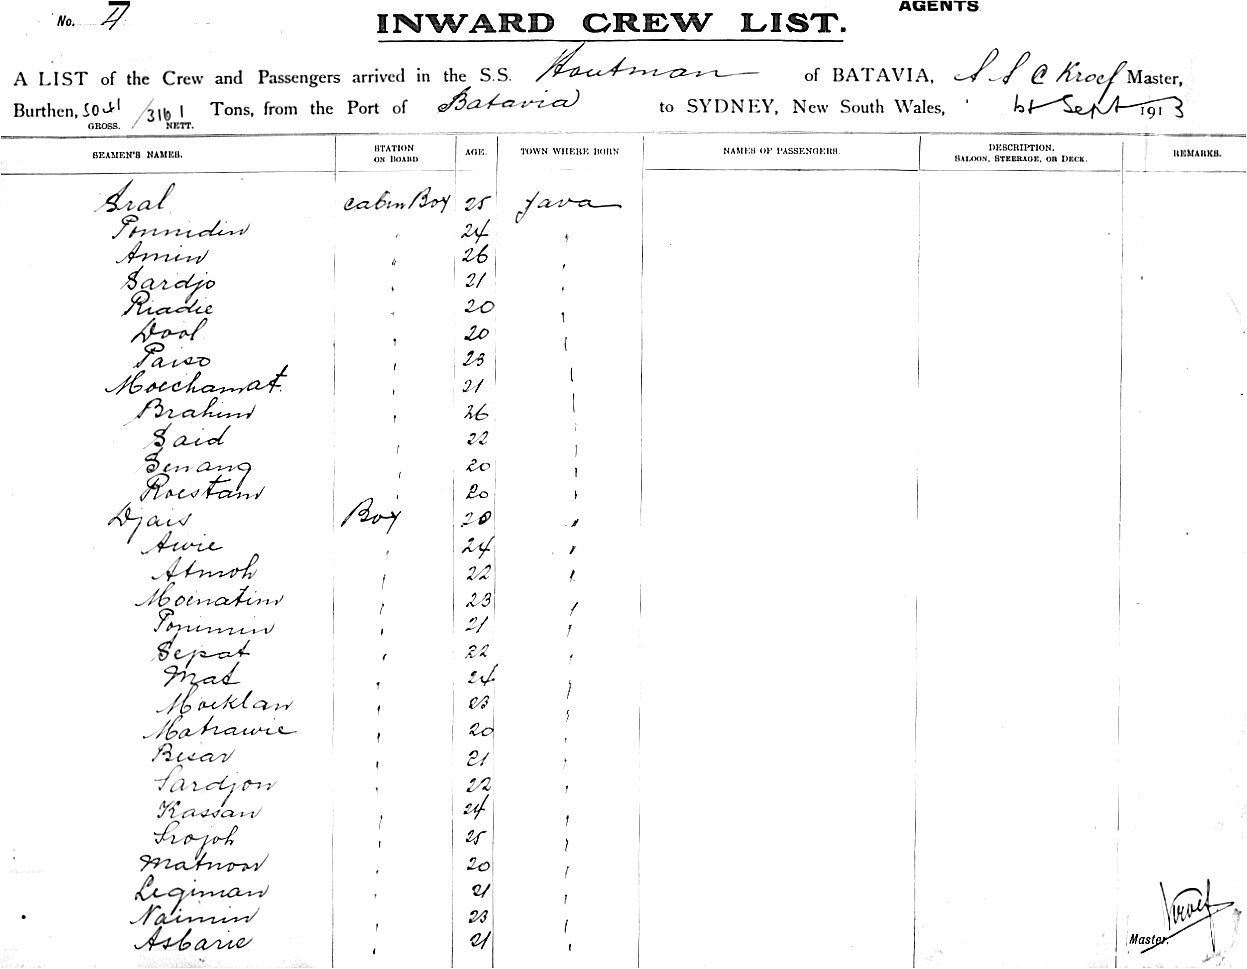 AGENTS
No. 4
INWARD CREW LIST.
A LIST of the Crew and Passengers arrived in the S.S. Houtman of BATAVIA, Kroef Master,
Burthen, 5041 GROSS. /3161 NETT. Tons, from the Port of Batavia to SYDNEY, New South Wales, 1st Sept 1913
SEAMEN'S NAMES. STATION ON BOARD AGE. TOWN WHERE BORN NAMES OF PASSENGERS. DESCRIPTION. SALOON, STEERAGE, OR DECK. REMARKS.
Sral cabin Boy 25 Java
Ponnidin " 24 "
Amin " 26 "
Sardjo " 21 "
Riadie " 20 "
Dool " 20 "
Paiso " 23 "
Moechamat " 21 "
Brahim " 26 "
Said " 22 "
Senang " 20 "
Roestam " 20 "
Djais Boy 20 "
Awie " 24 "
Atmoh " 22 "
Moenatim " 23 "
Ponimin " 21 "
Sepat " 22 "
Mat " 24 "
Moeklan " 23 "
Matrawie " 20 "
Besar " 21 "
Sardjon " 22 "
Kassan " 24 "
Srojoh " 25 "
Matnoor " 20 "
Legiman " 21 "
Naimin " 23 "
Asbarie " 21 "
Kroef
Master.